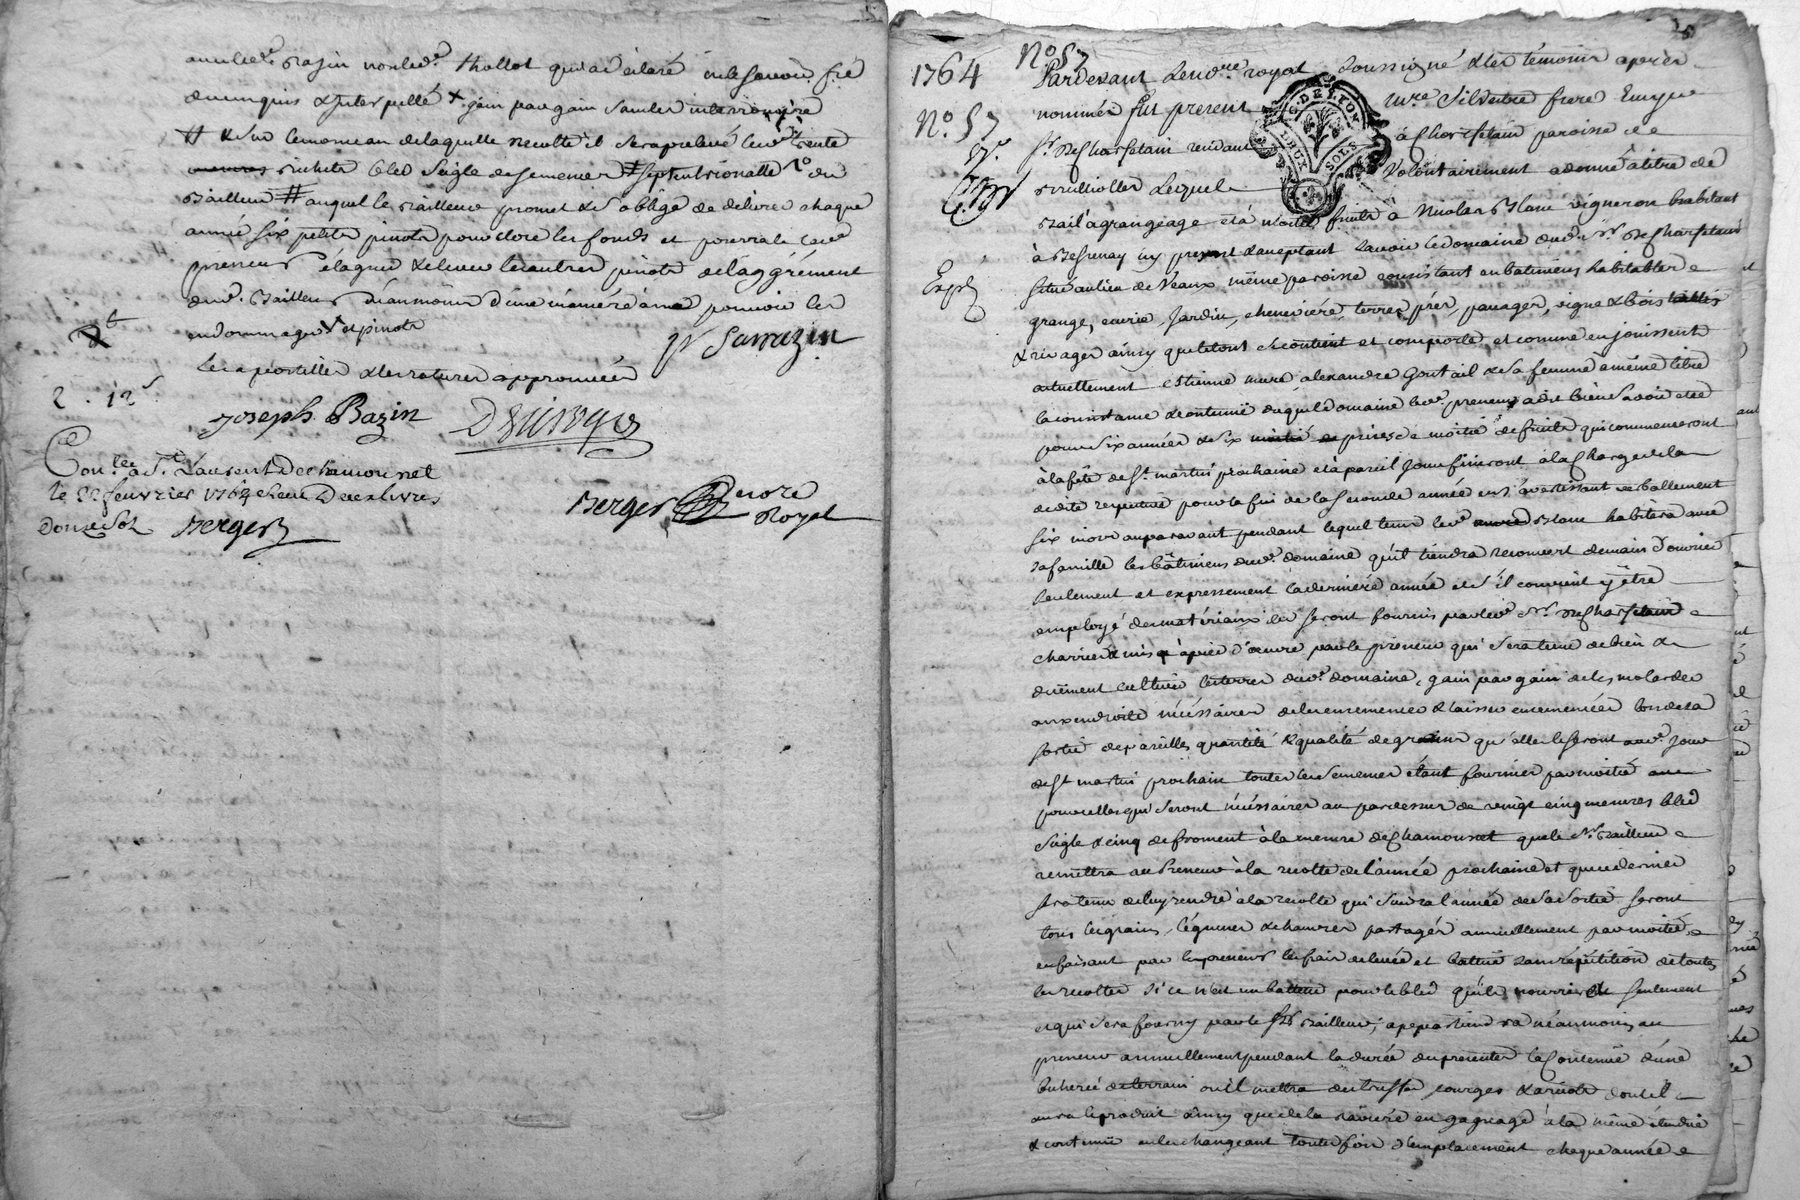 qui a déclaré ne le savoir
de ce enquis & interpellé x gain par gain
# & sur le monceau de laquelle recolte il sera prelevé trente
bichets bled seigle de semences
Bailleur # auquel le Bailleur promet & s'oblige de delivrer chaque
année six petits pinots pour clore les fonds et pourra led.
preneur élaguer les autres pinots de l'aggrément
dud. Bailleur néanmoins d'une manière à ne pouvoir les
endommager x et pinots
Sarrazin
les apostilles & les ratures approuvées
2 . 12 s
Joseph Bazin
Con.lé à S.t Laurent De chamousset
le 22 fevrier 1764 Reçu Deux livres
Douze Sols Berger
Berger Nore Royal
1764
N.o 57
N.o 57
Expé
Pardevant le no.re royal soussigné & les témoins après
nommés fut present M.re Silvestre frere Ecuyer
S.r De Charfetain resident à Charfetain paroisse de
Brullioles Lequel Volontairement a donné à titre de
Bail à grangeage et à moitié fruits à Nicolas Blanc vigneron habitant
à Bessenay icy present & acceptant savoir le domaine dud. S.r De Charfetain
situé au lieu de Veaux même paroisse consistant en batiments habitables
grange, ecurie, Jardin, cheneviére, terres, prés, pacages, vigne & bois taillis
& rivages ainsy que le tout se contient et comporte, et comme en jouissent
actuellement Etienne mure, alexandre Goutail & sa femme à même titre
la consistance & contenüe duquel domaine led. preneur a dit bien savoir et ce
pour six années & six prises de moitié de fruits qui commenceront
à la fête de S.t martin prochaine et à pareil jour finiront à la charge de la
dedite respective pour la fin de la seconde année en s'avertissant verballement
six mois auparavant pendant lequel tems led. Blanc habitera avec
sa famille les bâtimens dud. domaine qu'il tiendra recouvert de main d'ouvrier
seulement et expressement la derniére année et s'il convient y être
employé des matériaux ils seront fournis par led. S.r De Charfetain
charriés & mis à pied d'œuvre par le preneur qui sera tenu de bien &
duëment cultiver les terres dud. domaine, gain par gain
aux endroits nécéssaires de les ensemencer & laisser ensemencées lors de sa
sortie de pareilles quantité & qualité de grains qu'elles le seront aud. jour
de S.t martin prochain toutes les semences étant fournies par moitié
pour celles qui seront nécéssaires au pardessus de vingt cinq mesures bled
seigle & cinq de froment à la mesure de Chamousset que le S.r Bailleur
remettra au Preneur à la recolte de l'année prochaine et que ce dernier
sera tenu de luy rendre à la recolte qui suivra l'année de sa sortie seront
tous les grains, légumes & chanvres partagés annuellement par moitié
en faisant par le preneur les frais de levée et batture sans répétition de toutes
les recoltes si ce n'est un batteur pour le bled qu'il nourrira seulement
et qui sera fourny par le S.r Bailleur; apartiendra néanmoins au
preneur annuellement pendant la durée du presentes la Contenüe d'une
bicherée de terrain où il mettra des truffes courges & aricots dont il
aura le produit ainsy que de la raviere en gagneage à la même étendue
& contenüe en les changeant toutes fois d'emplacement chaque année